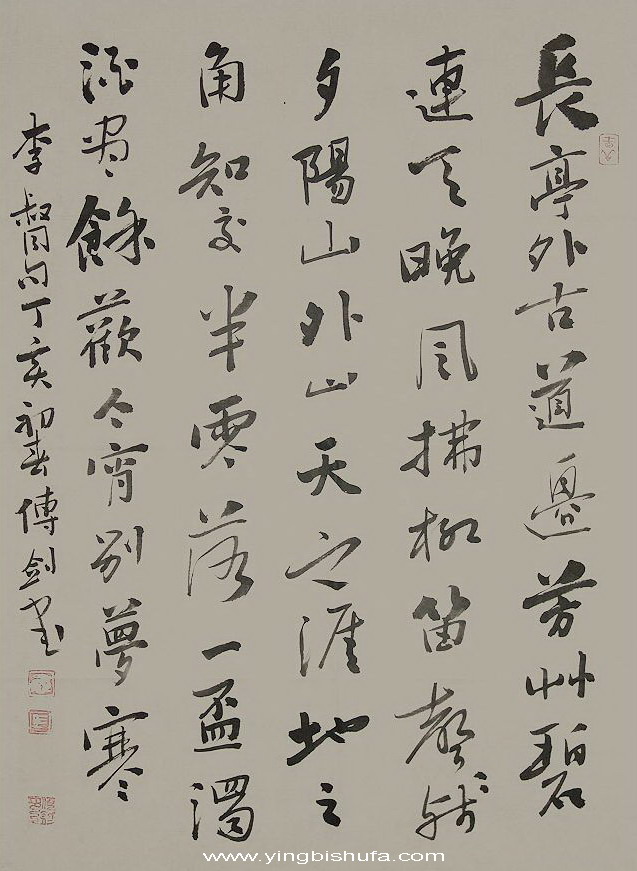 長亭外古道邊芳艸碧
連天晚風拂柳笛聲残
夕陽山外山天之涯地之
角知交半零落一盃濁
酒盡餘歡今宵别夢寒
李叔同句丁亥初春傅剑書
www.yingbishufa.com